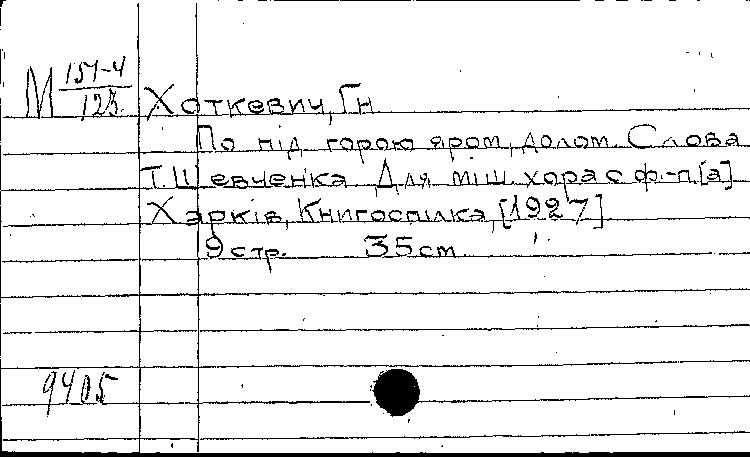 М 151-4
123.
Хоткевич, Гн.
По під горою яром, долом. Слова
Т. Шевченка. Для міш. хора с ф.-п.[а]
Харків, Книгоспілка, [1927].
9 стр. 35 cm.
9405